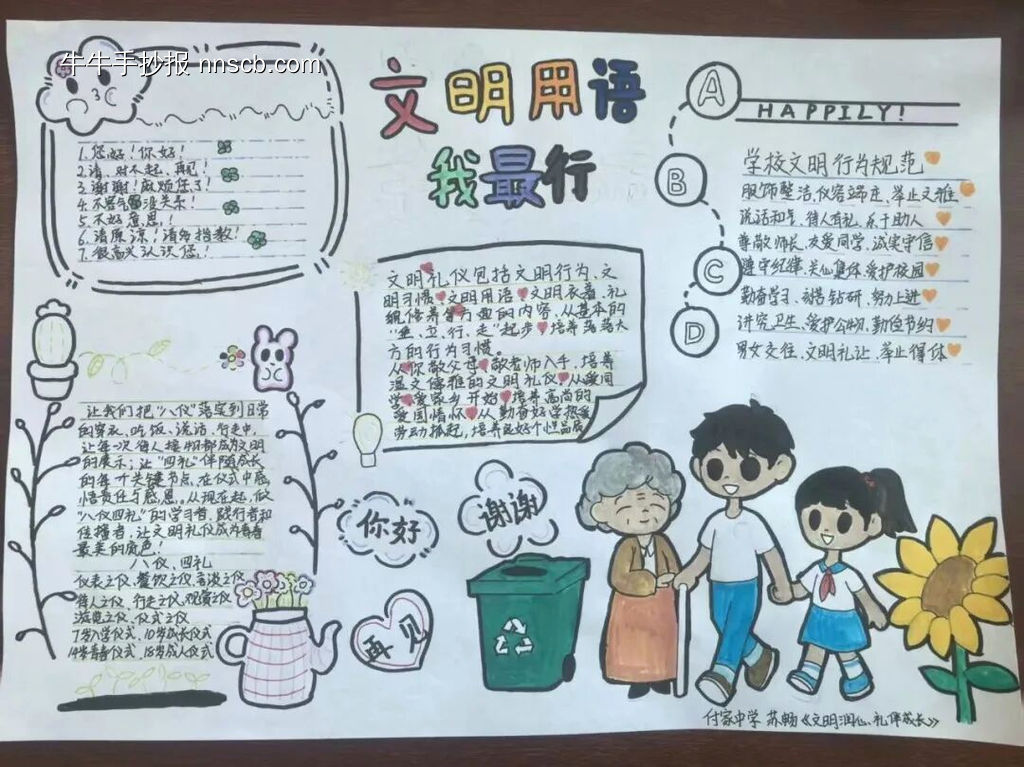 牛牛手抄报 nnscb.com
文明用语
我最行
1.您好！你好！
2.请、对不起、再见！
3.谢谢！麻烦您了！
4.不客气！没关系！
5.不好意思！
6.请原谅！请多指教！
7.很高兴认识您！
A
HAPPILY!
B
C
D
学校文明行为规范
服饰整洁、仪容端庄、举止文雅
说话和气、待人有礼、乐于助人
尊敬师长、友爱同学、诚实守信
遵守纪律、关心集体、爱护校园
勤奋学习、刻苦钻研、努力上进
讲究卫生、爱护公物、勤俭节约
男女交往、文明礼让、举止得体
文明礼仪包括文明行为、文
明习惯、文明用语、文明衣着、礼
貌修养等方面的内容，从基本的
"坐、立、行、走"起步，培养落落大
方的行为习惯。
从你敬父母、敬老师入手，培养
温文儒雅的文明礼仪，从爱同
学、爱家乡开始，培养高尚的
爱国情怀，从勤奋好学热爱
劳动抓起，培养良好个性品质
让我们把"八仪"落实到日常
的穿衣、吃饭、说话、行走中，
让每一次待人接物都成为文明
的展示；让"四礼"伴随成长
的每个关键节点，在仪式中感
悟责任与感恩。从现在起，做
"八仪四礼"的学习者、践行者和
传播者，让文明礼仪成为青春
最美的底色！
八仪、四礼
仪表之仪、餐饮之仪、言谈之仪
待人之仪、行走之仪、观赏之仪
游览之仪、仪式之仪
7岁入学仪式、10岁成长仪式
14岁青春仪式、18岁成人仪式
你好
谢谢
再见
付家中学 苏畅《文明润心、礼伴成长》